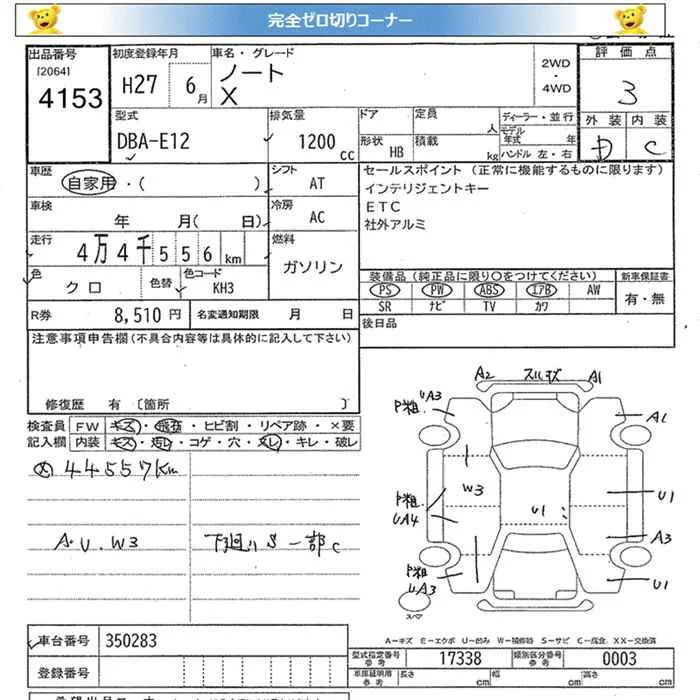 完全ゼロ切りコーナー
出品番号 初度登録年月 車名・グレード 2WD ・ 4WD 評価点
[2064]
4153 H27 6月 ノート X 3
外装 内装
D C
型式 排気量 ドア 定員 人 ディーラー・並行
DBA-E12 1200cc 形状 HB 積載 kg モデル年式 年
ハンドル 左・右
車歴 シフト セールスポイント (正常に機能するものに限ります)
自家用・( ) AT インテリジェントキー
車検 冷房 ETC
年 月(日) AC 社外アルミ
走行 燃料
4万4千556km ガソリン
色 色替 色コード 装備品(純正品に限り○をつけてください) 新車保証書
クロ KH3 PS PW ABS エアB AW 有・無
SR ナビ TV カワ
R券 8,510円 名変通知期限 月 日 後日品
注意事項申告欄(不具合内容等は具体的に記入して下さい)
修復歴 有 〔箇所 〕
検査員 FW キズ・飛石・ヒビ割・リペア跡・×要
記入欄 内装 キズ・汚レ・コゲ・穴・スレ・キレ・破レ
44557km
A.U.W3 下廻りS一部C
A2 スリキズ A1
P粗 UA3 A1
W3 U1 U1
P粗 UA4 A3
P粗 UA3 U1
スペア
A-キズ E-エクボ U-凹み W-補修跡 S-サビ C-腐食 XX-交換済
車台番号 350283 型式指定番号 参考 17338 類別区分番号 参考 0003
登録番号 車庫証明用 参考 長さ cm 幅 cm 高さ cm